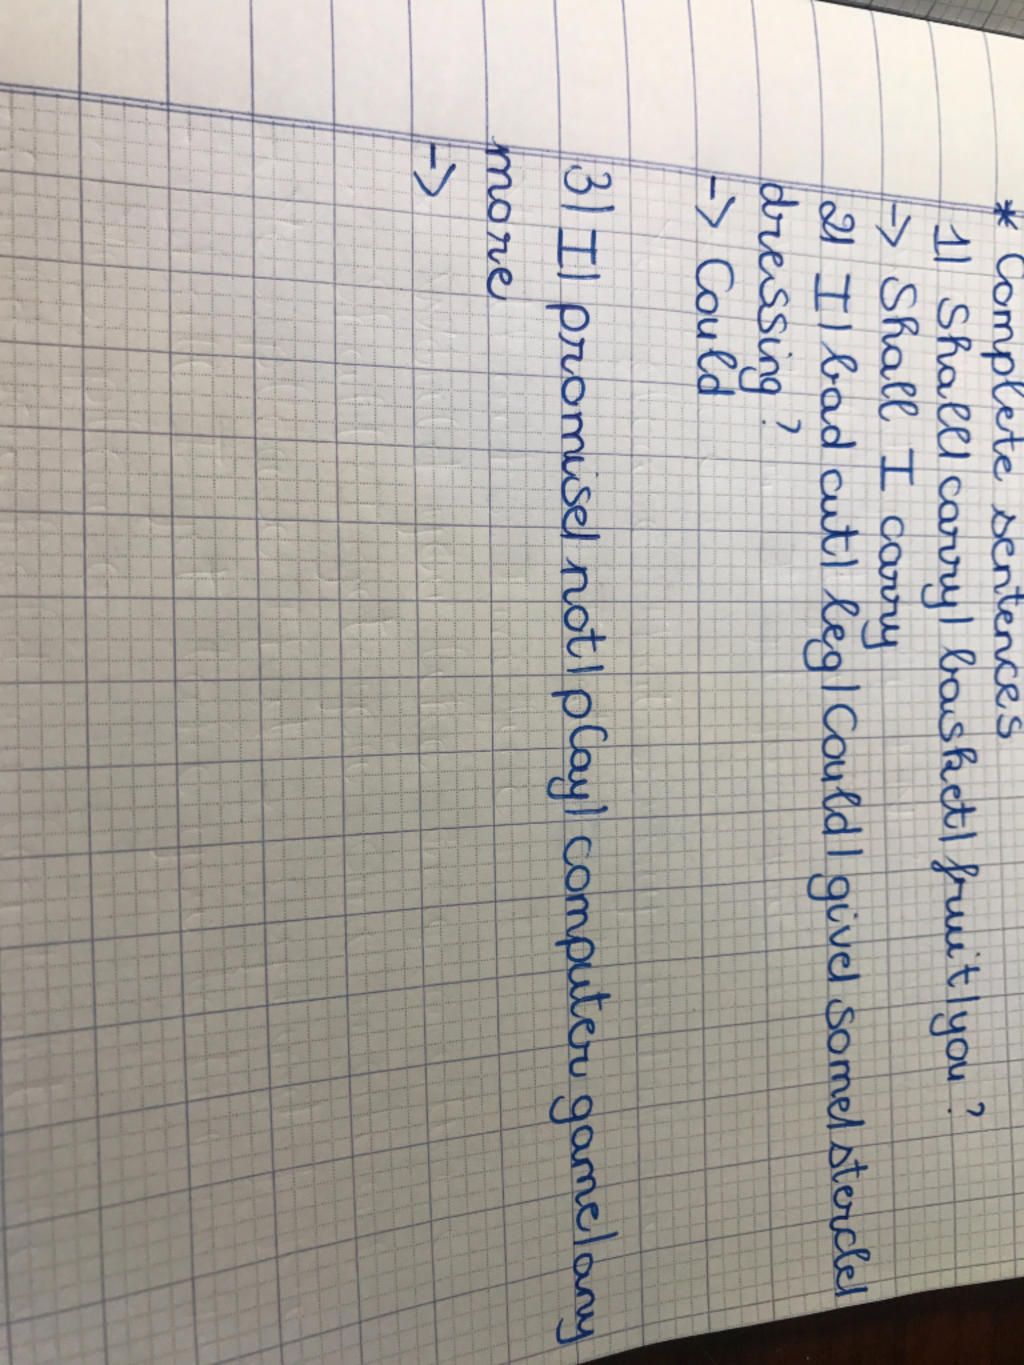 * Complete sentences
1) Shall/ carry/ basket/ fruit/ you?
-> Shall I carry
2) I/ bad cut/ leg/ Could/ give/ some/
dressing?
-> Could
3) I/ promise/ not/ play/ computer game/ any
more
->